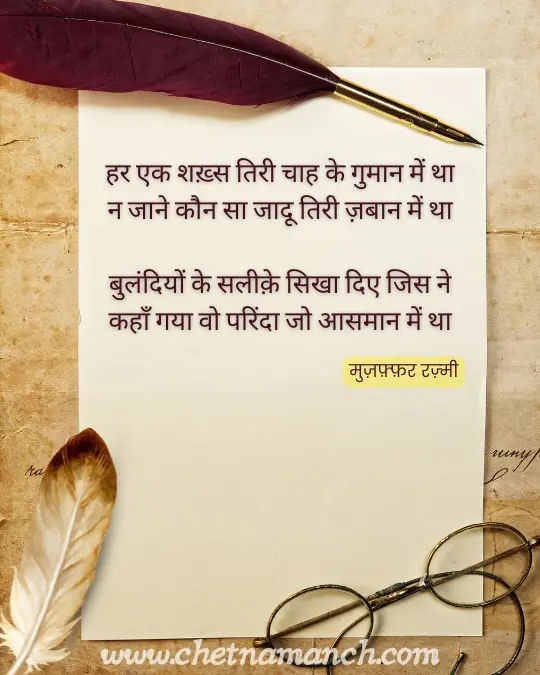 हर एक शख़्स तिरी चाह के गुमान में था
न जाने कौन सा जादू तिरी ज़बान में था
बुलंदियों के सलीक़े सिखा दिए जिस ने
कहाँ गया वो परिंदा जो आसमान में था
मुज़फ़्फ़र रज़्मी
www.chetnamanch.com